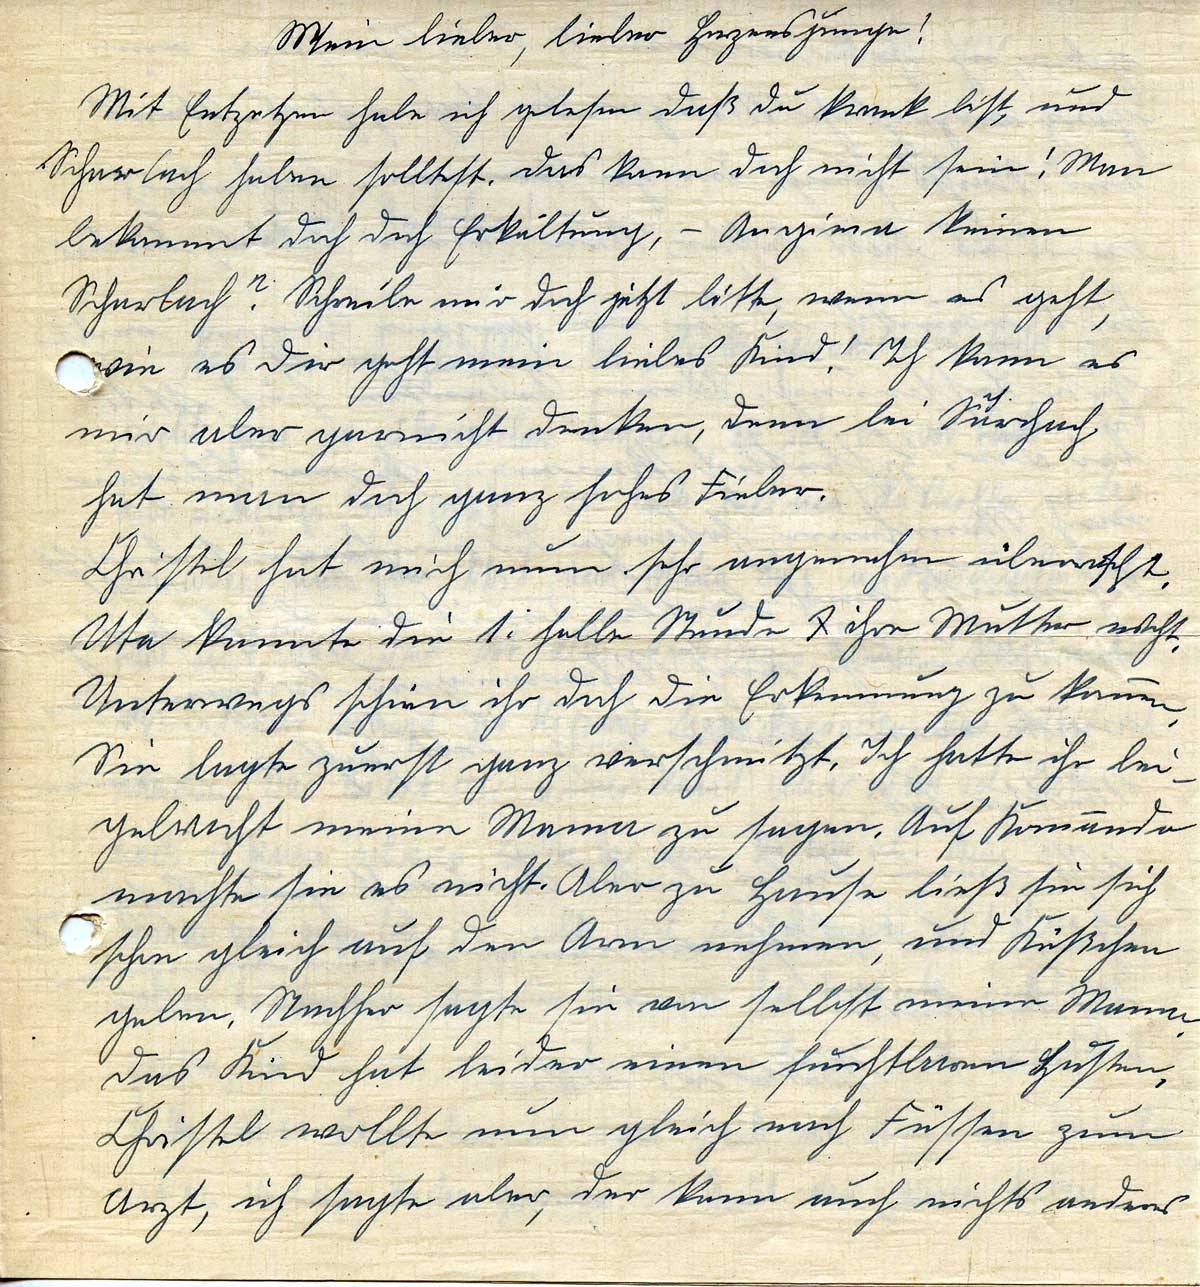 Mein lieber, lieber Herzensjunge!
Mit Entsetzen habe ich gelesen daß du krank bist, und
Scharlach haben solltest. Das kann doch nicht sein! Man
bekommt doch doch Erkältung, – Angina keinen
Scharlach? Schreibe mir doch jetzt bitte, wenn es geht,
wie es Dir geht mein liebes Kind! Ich kann es
mir aber garnicht denken, denn bei
hat man doch ganz hohes Fieber.
Christel hat mich nun sehr angenehm überrascht.
Uta kannte die 1. halbe Stunde ihre Mutter nicht.
Unterwegs schien ihr doch die Erkennung zu kommen,
Sie lagte zuerst ganz verschmitzt. Ich hatte ihr bei-
gebracht meine Mama zu sagen. Auf Komando
machte sie es nicht. Aber zu Hause ließ sie sich
schon gleich auf den Arm nehmen, und Küßchen
geben. Nachher sagte sie von selbst meine Mama.
Das Kind hat leider einen furchtbaren Husten,
Christel wollte nun gleich nach Füssen zum
Arzt, ich sagte aber, der kann auch nichts anderes